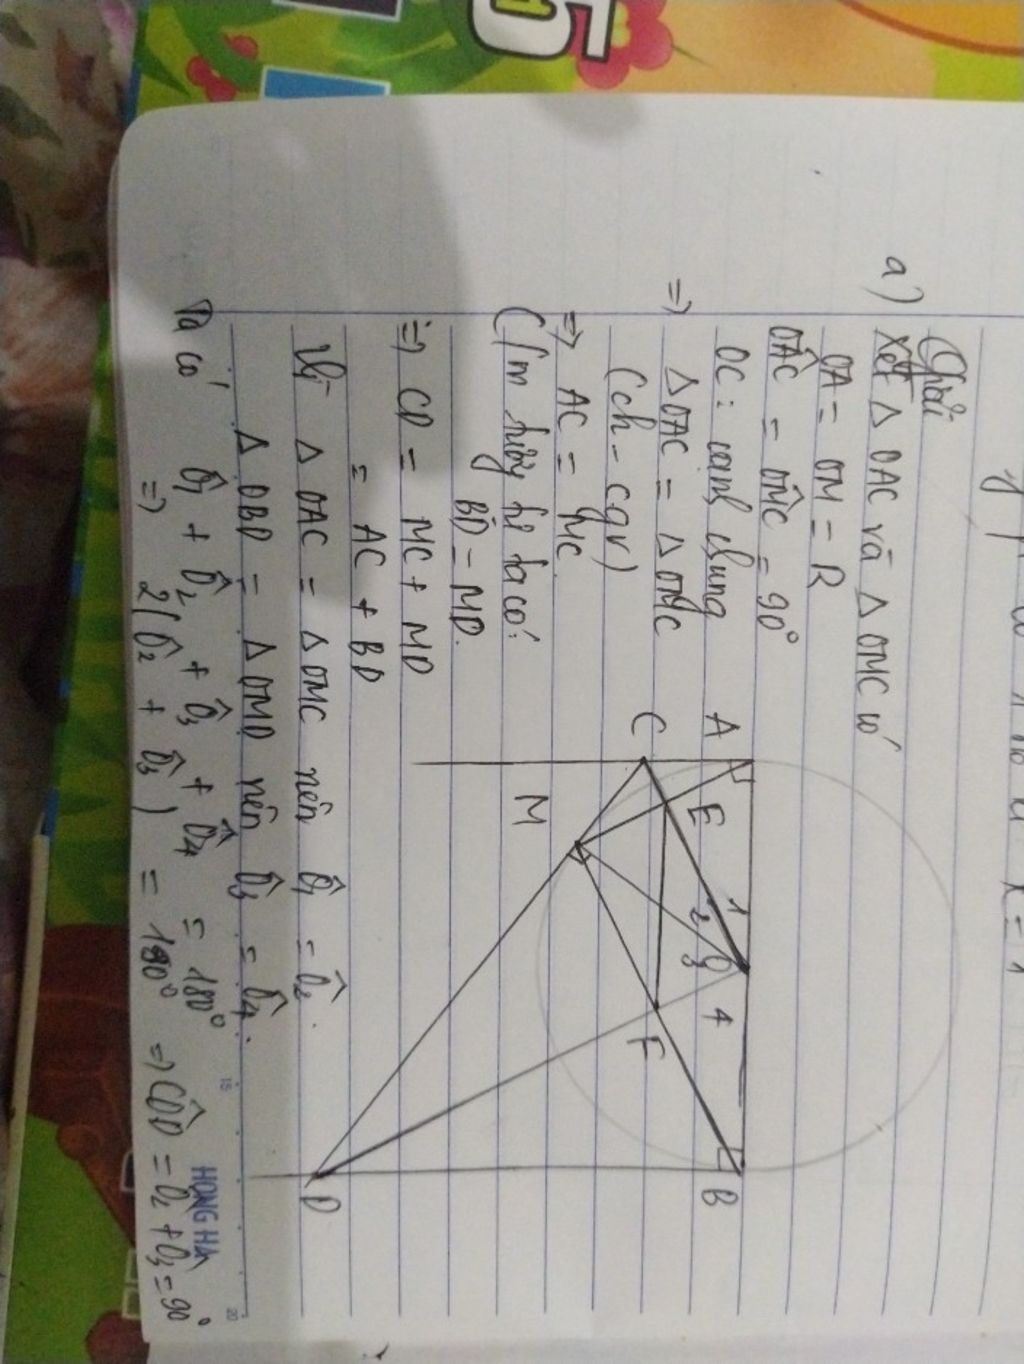 Giải
a) Xét Δ OAC và Δ OMC có
OA = OM = R
OÂC = OM̂C = 90°
OC: cạnh chung
=> Δ OAC = Δ OMC
(ch - cgv)
=> AC = MC
C/m tương tự ta có:
BD = MD.
=> CD = MC + MD
= AC + BD
Vì Δ OAC = Δ OMC nên Ô1 = Ô2.
Δ OBD = Δ OMD nên Ô3 = Ô4.
Ta có Ô1 + Ô2 + Ô3 + Ô4 = 180°
=> 2(Ô2 + Ô3) = 180° => CÔD = Ô2 + Ô3 = 90°
A
E
1
C
2
O
3
4
M
F
B
D
HỒNG HÀ
15
20